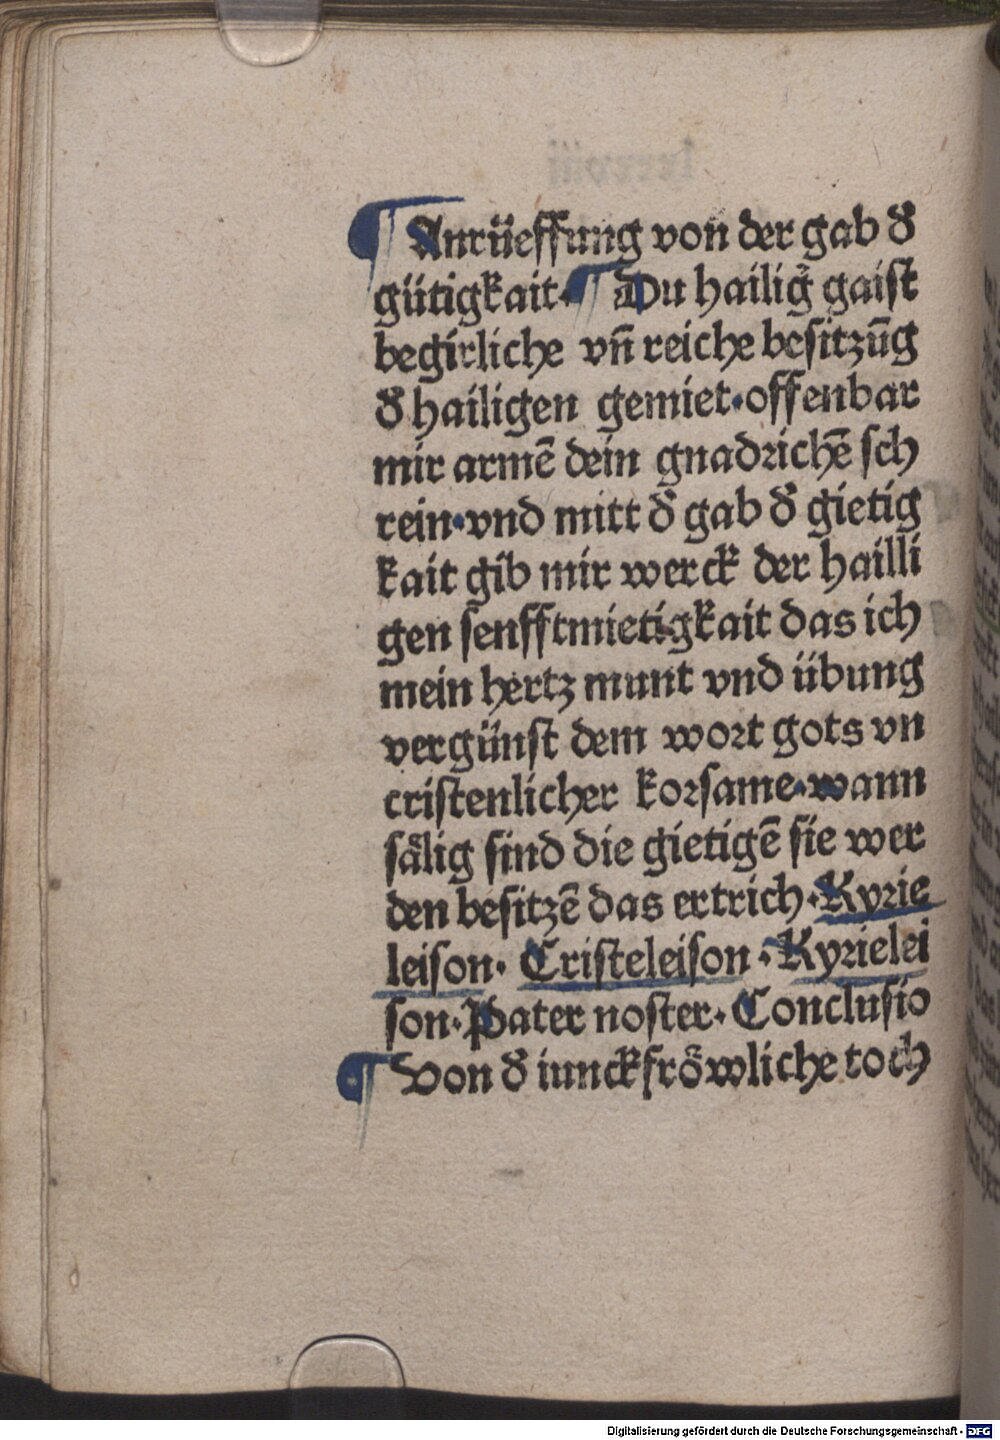 ¶ Anrüeffung von der gab đ
gütigkait. ¶ Du hailig̛ gaist
begirliche vn̄ reiche besitzūg
đ hailigen gemiet·offenbar
mir armē dein gnadrichē sch
rein·vnd mitt đ gab đ gietig
kait gib mir werck der hailli
gen senfftmietigkait das ich
mein hertz munt vnd übung
vergünst dem wort gots vn
cristenlicher korsame·wann
sälig sind die gietigē sie wer
den besitzē das ertrich·Kyrie
leison· Cristeleison·Kyrielei
son·Pater noster·Conclusio
¶ Von đ iunckfröwliche toch
Digitalisierung gefördert durch die Deutsche Forschungsgemeinschaft - DFG